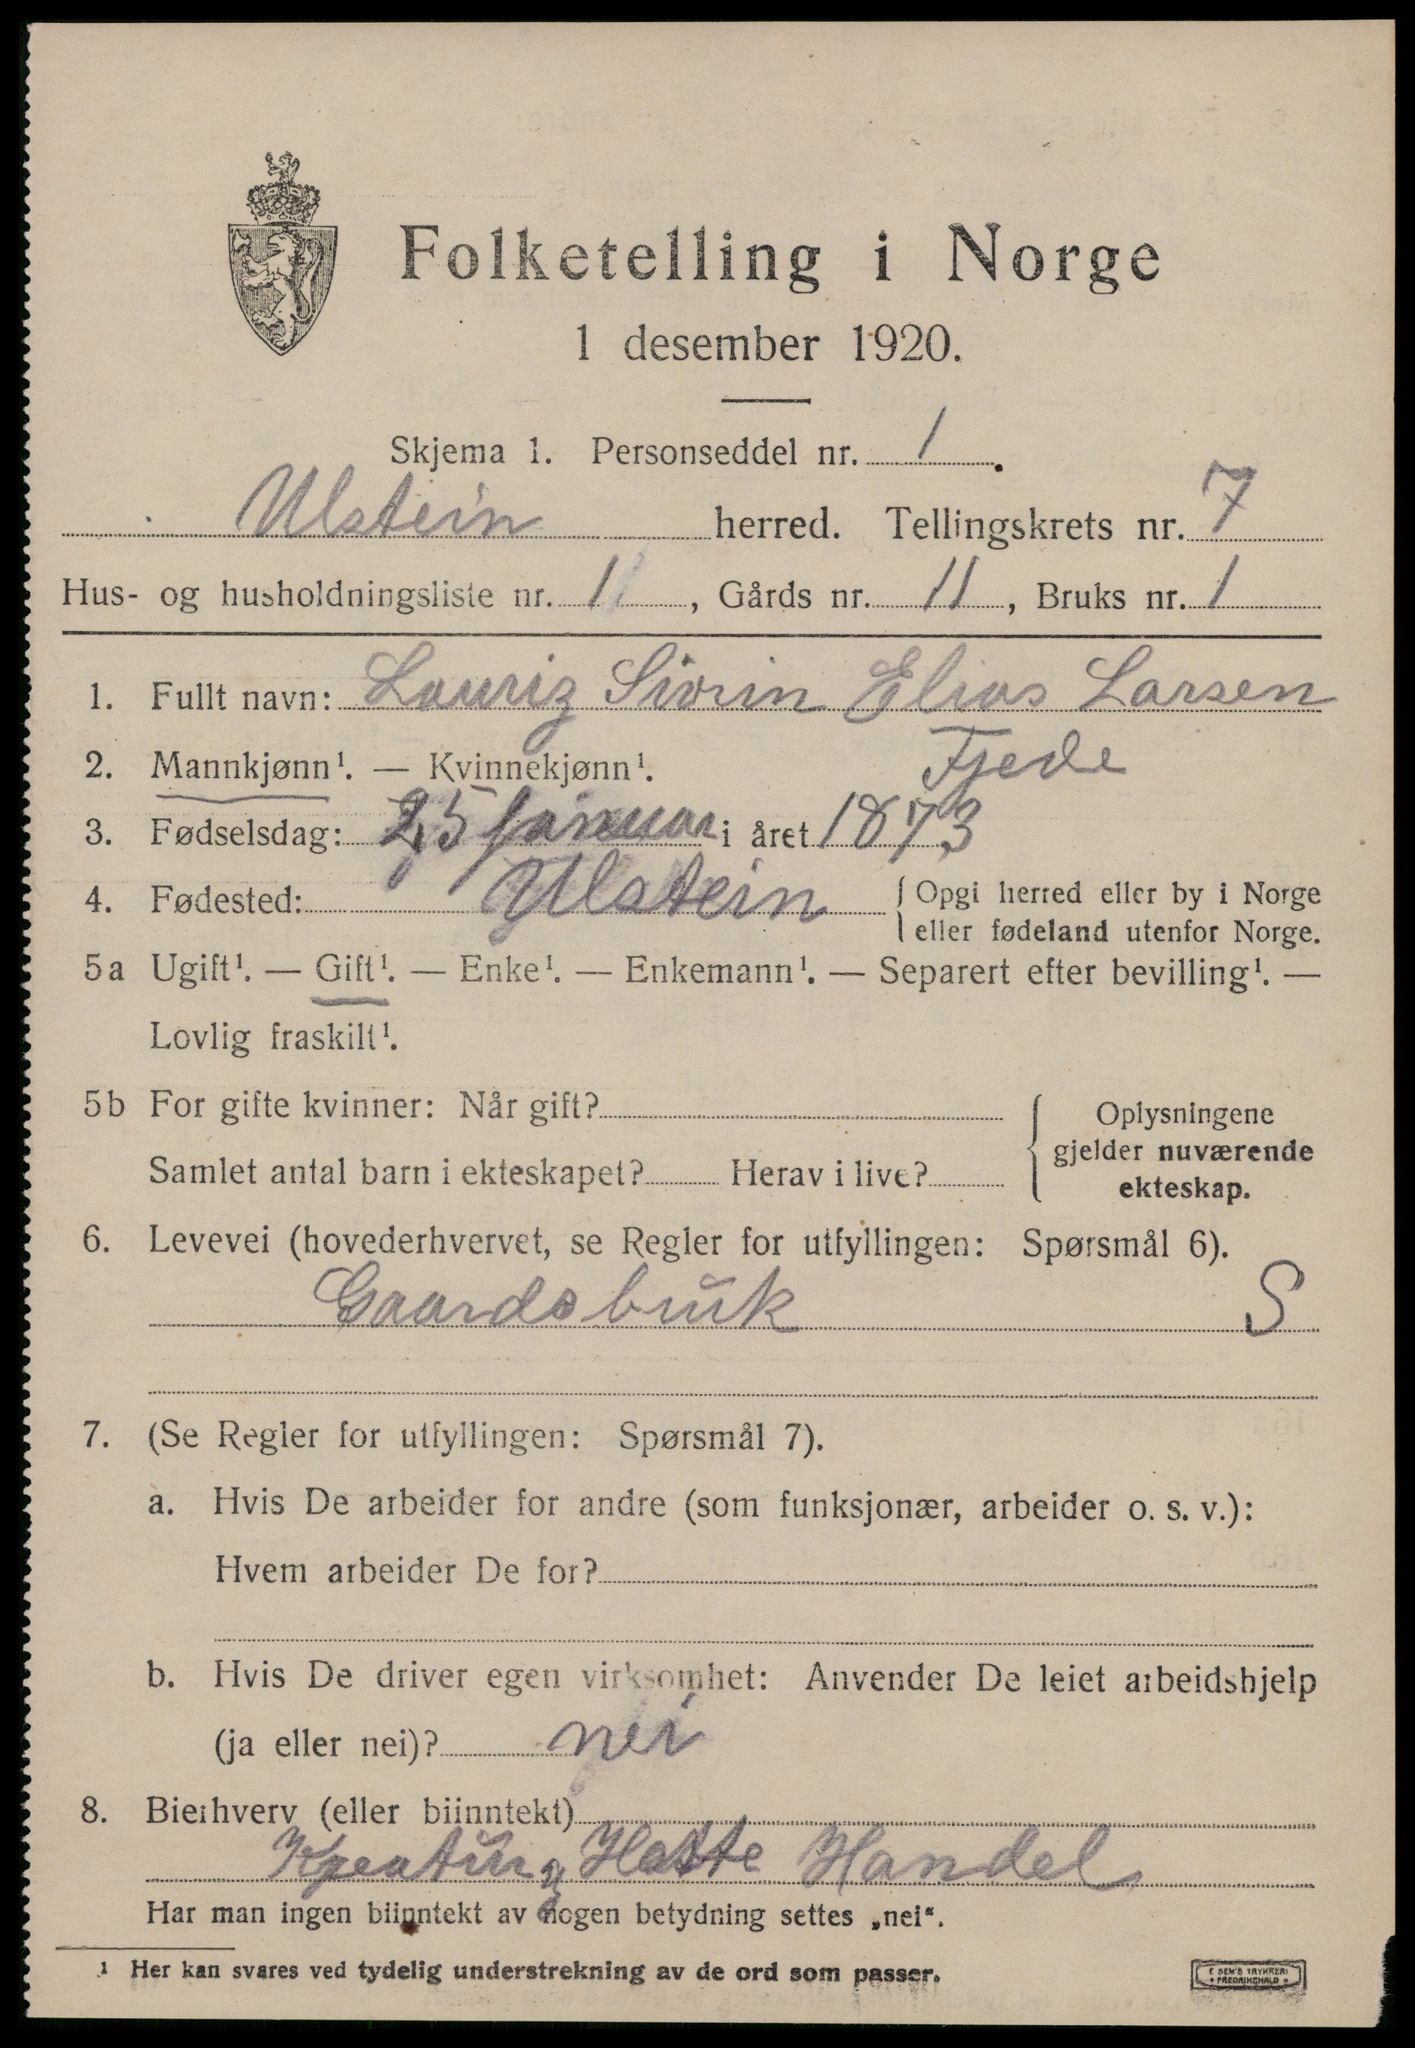 Folketelling i Norge
1 desember 1920.
Skjema 1. Personseddel nr. 1.
Ulstein herred. Tellingskrets nr. 7
Hus- og husholdningsliste nr. 1, Gårds nr. 11, Bruks nr. 1
1. Fullt navn: Lauriz Sivrin Elias Larsen
Fjede
2. Mannkjønn¹. — Kvinnekjønn¹.
3. Fødselsdag: 25 januar i året 1873
4. Fødested: Ulstein { Opgi herred eller by i Norge
eller fødeland utenfor Norge.
5a Ugift¹. — Gift¹. — Enke¹. — Enkemann¹. — Separert efter bevilling¹. —
Lovlig fraskilt¹.
5b For gifte kvinner: Når gift? { Oplysningene
gjelder nuværende
Samlet antal barn i ekteskapet? Herav i live? ekteskap.
6. Levevei (hovederhvervet, se Regler for utfyllingen: Spørsmål 6).
Gaardsbruk S
7. (Se Regler for utfyllingen: Spørsmål 7).
a. Hvis De arbeider for andre (som funksjonær, arbeider o. s. v.):
Hvem arbeider De for?
b. Hvis De driver egen virksomhet: Anvender De leiet arbeidshjelp
(ja eller nei)? nei
8. Bierhverv (eller biinntekt)
Kreatur Heste Handel
Har man ingen biinntekt av nogen betydning settes „nei“.
¹ Her kan svares ved tydelig understrekning av de ord som passer.
E SEM'S TRYKKERI
FREDRIKSHALD